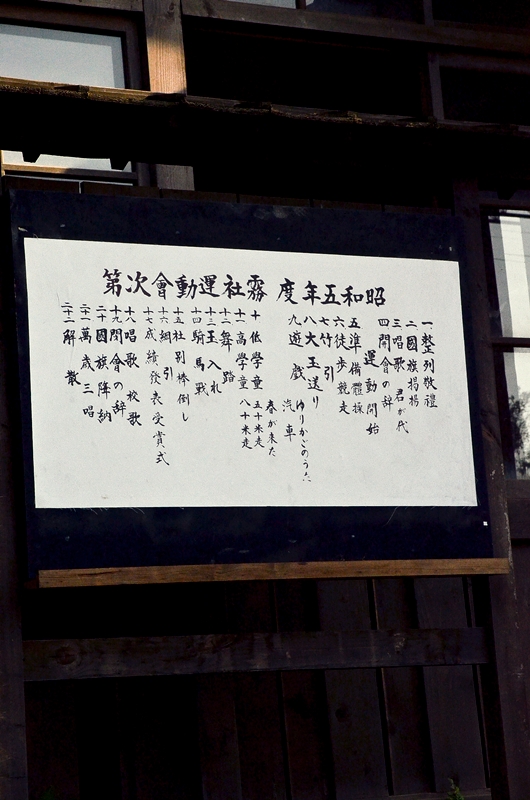 昭和五年度 霧社運動會次第
一 整列敬禮
二 國旗掲揚
三 唱歌 君が代
四 開會の辞
運動開始
五 準備體操
六 徒歩競走
七 竹引
八 大玉送り
九 遊戯 汽車
ゆりかごのうた
春が来た
十 低學童 五十米走
十一 高學童 八十米走
十二 舞踏
十三 玉入れ
十四 騎馬戦
十五 社別棒倒し
十六 綱引
十七 成績發表受賞式
十八 唱歌 校歌
十九 閉會の辞
二十 國旗降納
二十一 萬歳三唱
二十二 解散